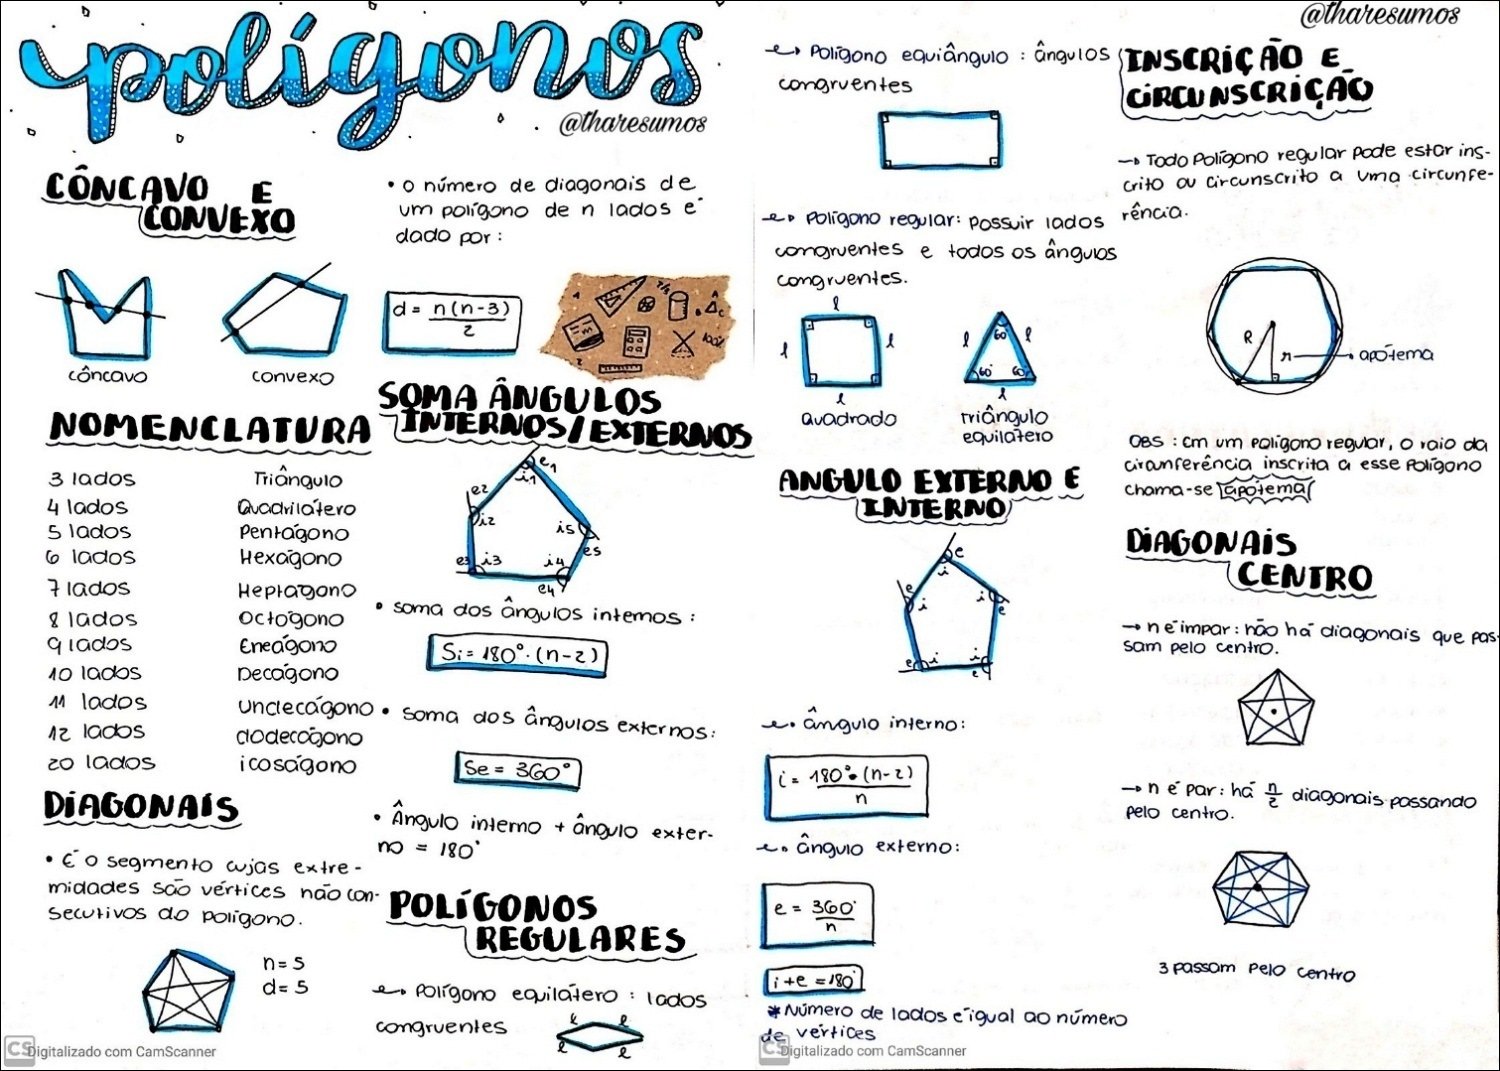 polígonos
@tharesumos
CÔNCAVO E
CONVEXO
côncavo
convexo
NOMENCLATURA
3 lados Triângulo
4 lados Quadrilátero
5 lados Pentágono
6 lados Hexágono
7 lados Heptágono
8 lados Octógono
9 lados Eneágono
10 lados Decágono
11 lados Undecágono
12 lados dodecágono
20 lados icoságono
DIAGONAIS
• É o segmento cujas extre-
midades são vértices não con-
secutivos do polígono.
n=5
d=5
• o número de diagonais de
um polígono de n lados é
dado por:
d = n(n-3)
2
SOMA ÂNGULOS
INTERNOS/EXTERNOS
e1
i1
e2
i2
i5
e5
e3 i3
i4
e4
• soma dos ângulos internos:
Si = 180°.(n-2)
• soma dos ângulos externos:
Se = 360°
• Ângulo interno + ângulo exter-
no = 180°
POLÍGONOS
REGULARES
Polígono equilátero: lados
congruentes
l l
l l
CS Digitalizado com CamScanner
Polígono equiângulo: ângulos
congruentes
Polígono regular: Possuir lados
congruentes e todos os ângulos
congruentes.
l
l l
l
quadrado
l l
60°
60° 60°
l
triângulo
equilátero
ANGULO EXTERNO E
INTERNO
e
i
e i
i e
e i
i e
ângulo interno:
i = 180°.(n-2)
n
ângulo externo:
e = 360°
n
i+e=180°
*Número de lados é igual ao número
de vértices
CS Digitalizado com CamScanner
@tharesumos
INSCRIÇÃO E
CIRCUNSCRIÇÃO
→ Todo Polígono regular pode estar ins-
crito ou circunscrito a uma circunfe-
rência.
R
r
apótema
OBS: Em um polígono regular, o raio da
circunferência inscrita a esse Polígono
chama-se apótema
DIAGONAIS
CENTRO
→ n é impar: não há diagonais que pas-
sam pelo centro.
→ n é par: há n/2 diagonais passando
pelo centro.
3 passam pelo centro